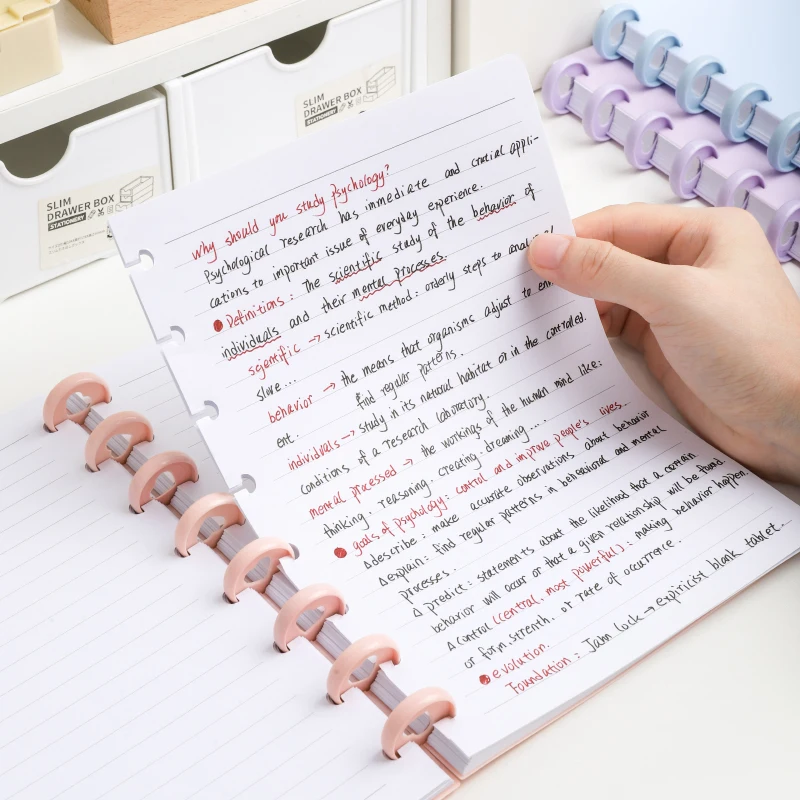 SLIM
DRAWER BOX
STATIONERY
SLIM
DRAWER BOX
STATIONERY
Why should you study Psychology?
Psychological research has immediate and crucial appli-
cations to important issue of everyday experience.
Definitions: The scientific study of the behavior of
individuals and their mental processes.
scientific → scientific method: orderly steps to
slove...
behavior → the means that organisms adjust to
ent. find regular patterns.
individuals → study in its natural habitat or in the controlled.
conditions of a research laboratory.
mental processed → the workings of the human mind like:
thinking. reasoning. creating. dreaming....
goals of psychology: control and improve people's lives...
△describe: make accurate observations about behavior
△explain: find regular patterns in behavioral and mental
processes.
△ predict: statements about the likelihood that a certain
behavior will occur or that a given relationship will be found.
△ control (central, most powerful): making behavior happen.
or form, strenth, or rate of occurrence.
evolution.
Foundation: Jam lock → expiricist blank tablet...